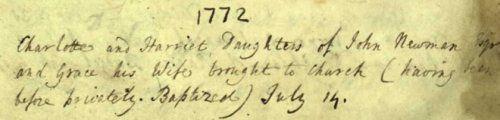 1772
Charlotte and Harriet Daughters of John Newman Esqr
and Grace his Wife brought to Church (having been
before privately. Baptized) July 14.